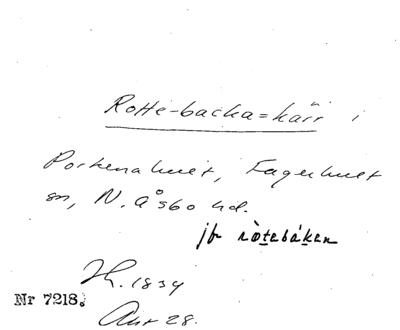 Rotte-backa=kärr i
Porkenahult, Fagerhult
sn, N. Åsbo hd.
jfr ròtebáken
Lh. 1834
Nr 7218.
Akt 28.